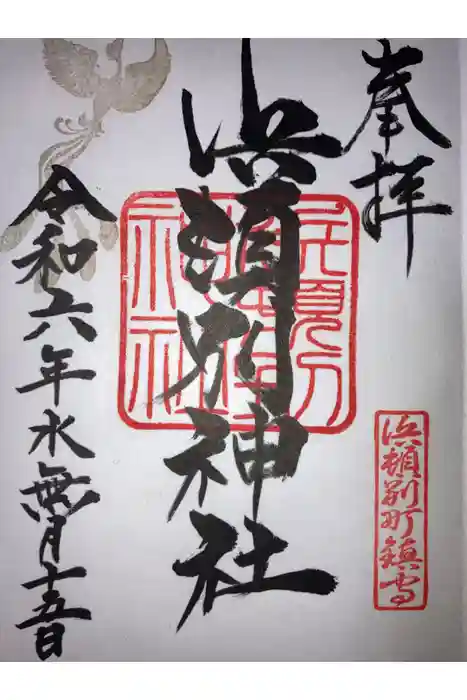 奉拝
浜頓別町鎮守
浜頓別神社
令和六年水無月十五日